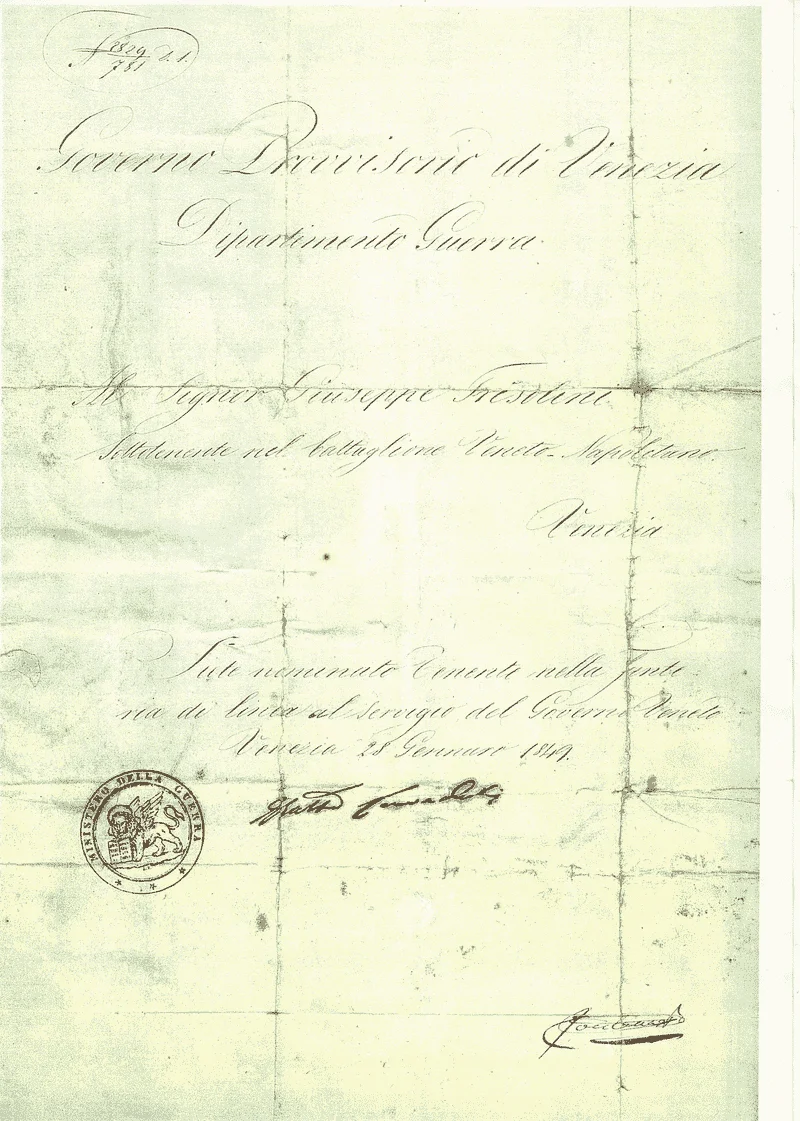 N 2829/781 d. 1.
Governo Provvisorio di Venezia
Dipartimento Guerra
Al Signor Giuseppe Frisolini
Sottotenente nel battaglione Veneto-Napoletano
Venezia
Siete nominato Tenente nella fante
ria di linea al servigio del Governo Veneto
Venezia 28 Gennaro 1849.
MINISTERO DELLA GUERRA